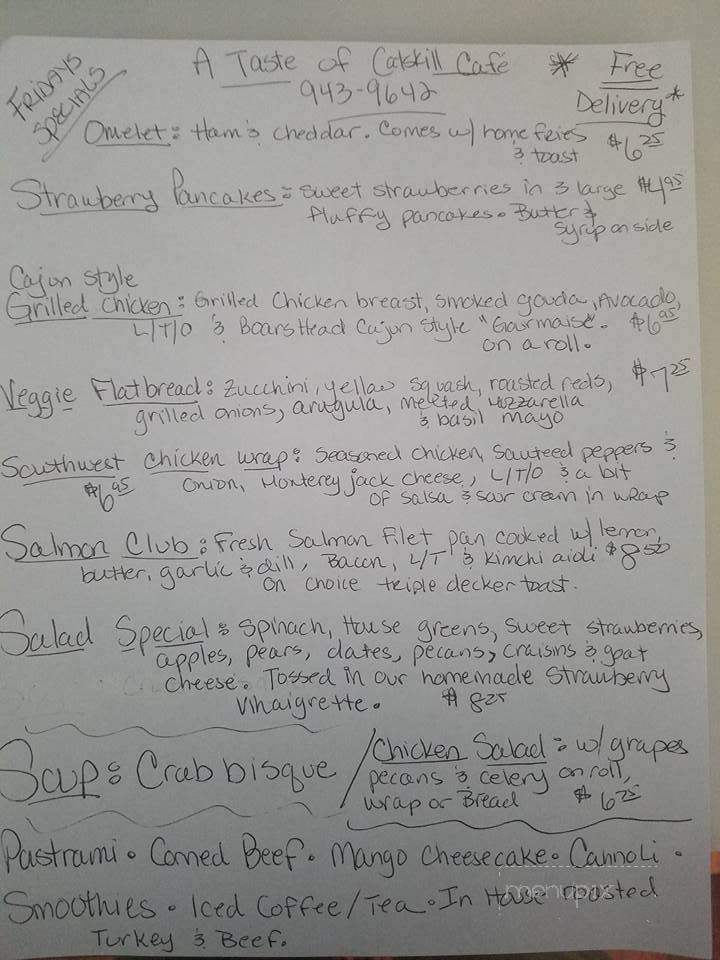 FRIDAYS
SPECIALS
A Taste of Catskill Café
943-9642
* Free
Delivery *
Omelet: Ham & cheddar. Comes w/ home fries
& toast $6.25
Strawberry Pancakes: Sweet strawberries in 3 large $4.95
fluffy pancakes. Butter &
syrup on side
Cajun Style
Grilled Chicken: Grilled Chicken breast, smoked gouda, Avocado,
L/T/O & Boars Head Cajun Style "Gourmaise". $6.95
on a roll.
Veggie Flatbread: Zucchini, yellow squash, roasted reds, $7.25
grilled onions, arugula, melted Mozzarella
& basil mayo
Southwest Chicken wrap: Seasoned chicken, Sauteed peppers &
$6.95 onion, Monterey jack cheese, L/T/O & a bit
of salsa & sour cream in wrap
Salmon Club: Fresh Salmon Filet pan cooked w/ lemon,
butter, garlic & dill, Bacon, L/T & kimchi aioli $8.50
on choice triple decker toast.
Salad Special: Spinach, House greens, Sweet strawberries,
apples, pears, dates, pecans, craisins & goat
cheese. Tossed in our homemade Strawberry
Vinaigrette. $8.25
Soup: Crab bisque
Chicken Salad: w/ grapes
pecans & celery on roll,
wrap or Bread $6.75
Pastrami • Corned Beef • Mango Cheesecake • Cannoli •
Smoothies • Iced Coffee/Tea • In House roasted
Turkey & Beef.
menupix